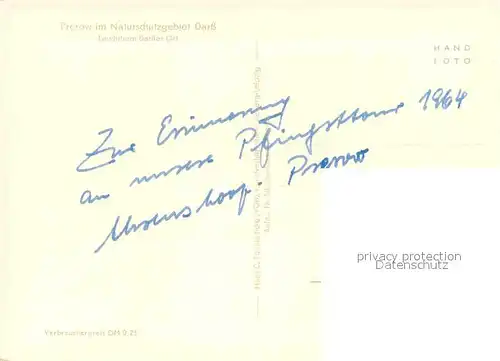 Prerow im Naturschutzgebiet Darß
Leuchtturm Darßer Ort
HAND
FOTO
Zur Erinnerung
an unsere Pfingsttour 1964
Ahrenshoop. Prerow
privacy protection
Datenschutz
Verbraucherpreis DM 0,25